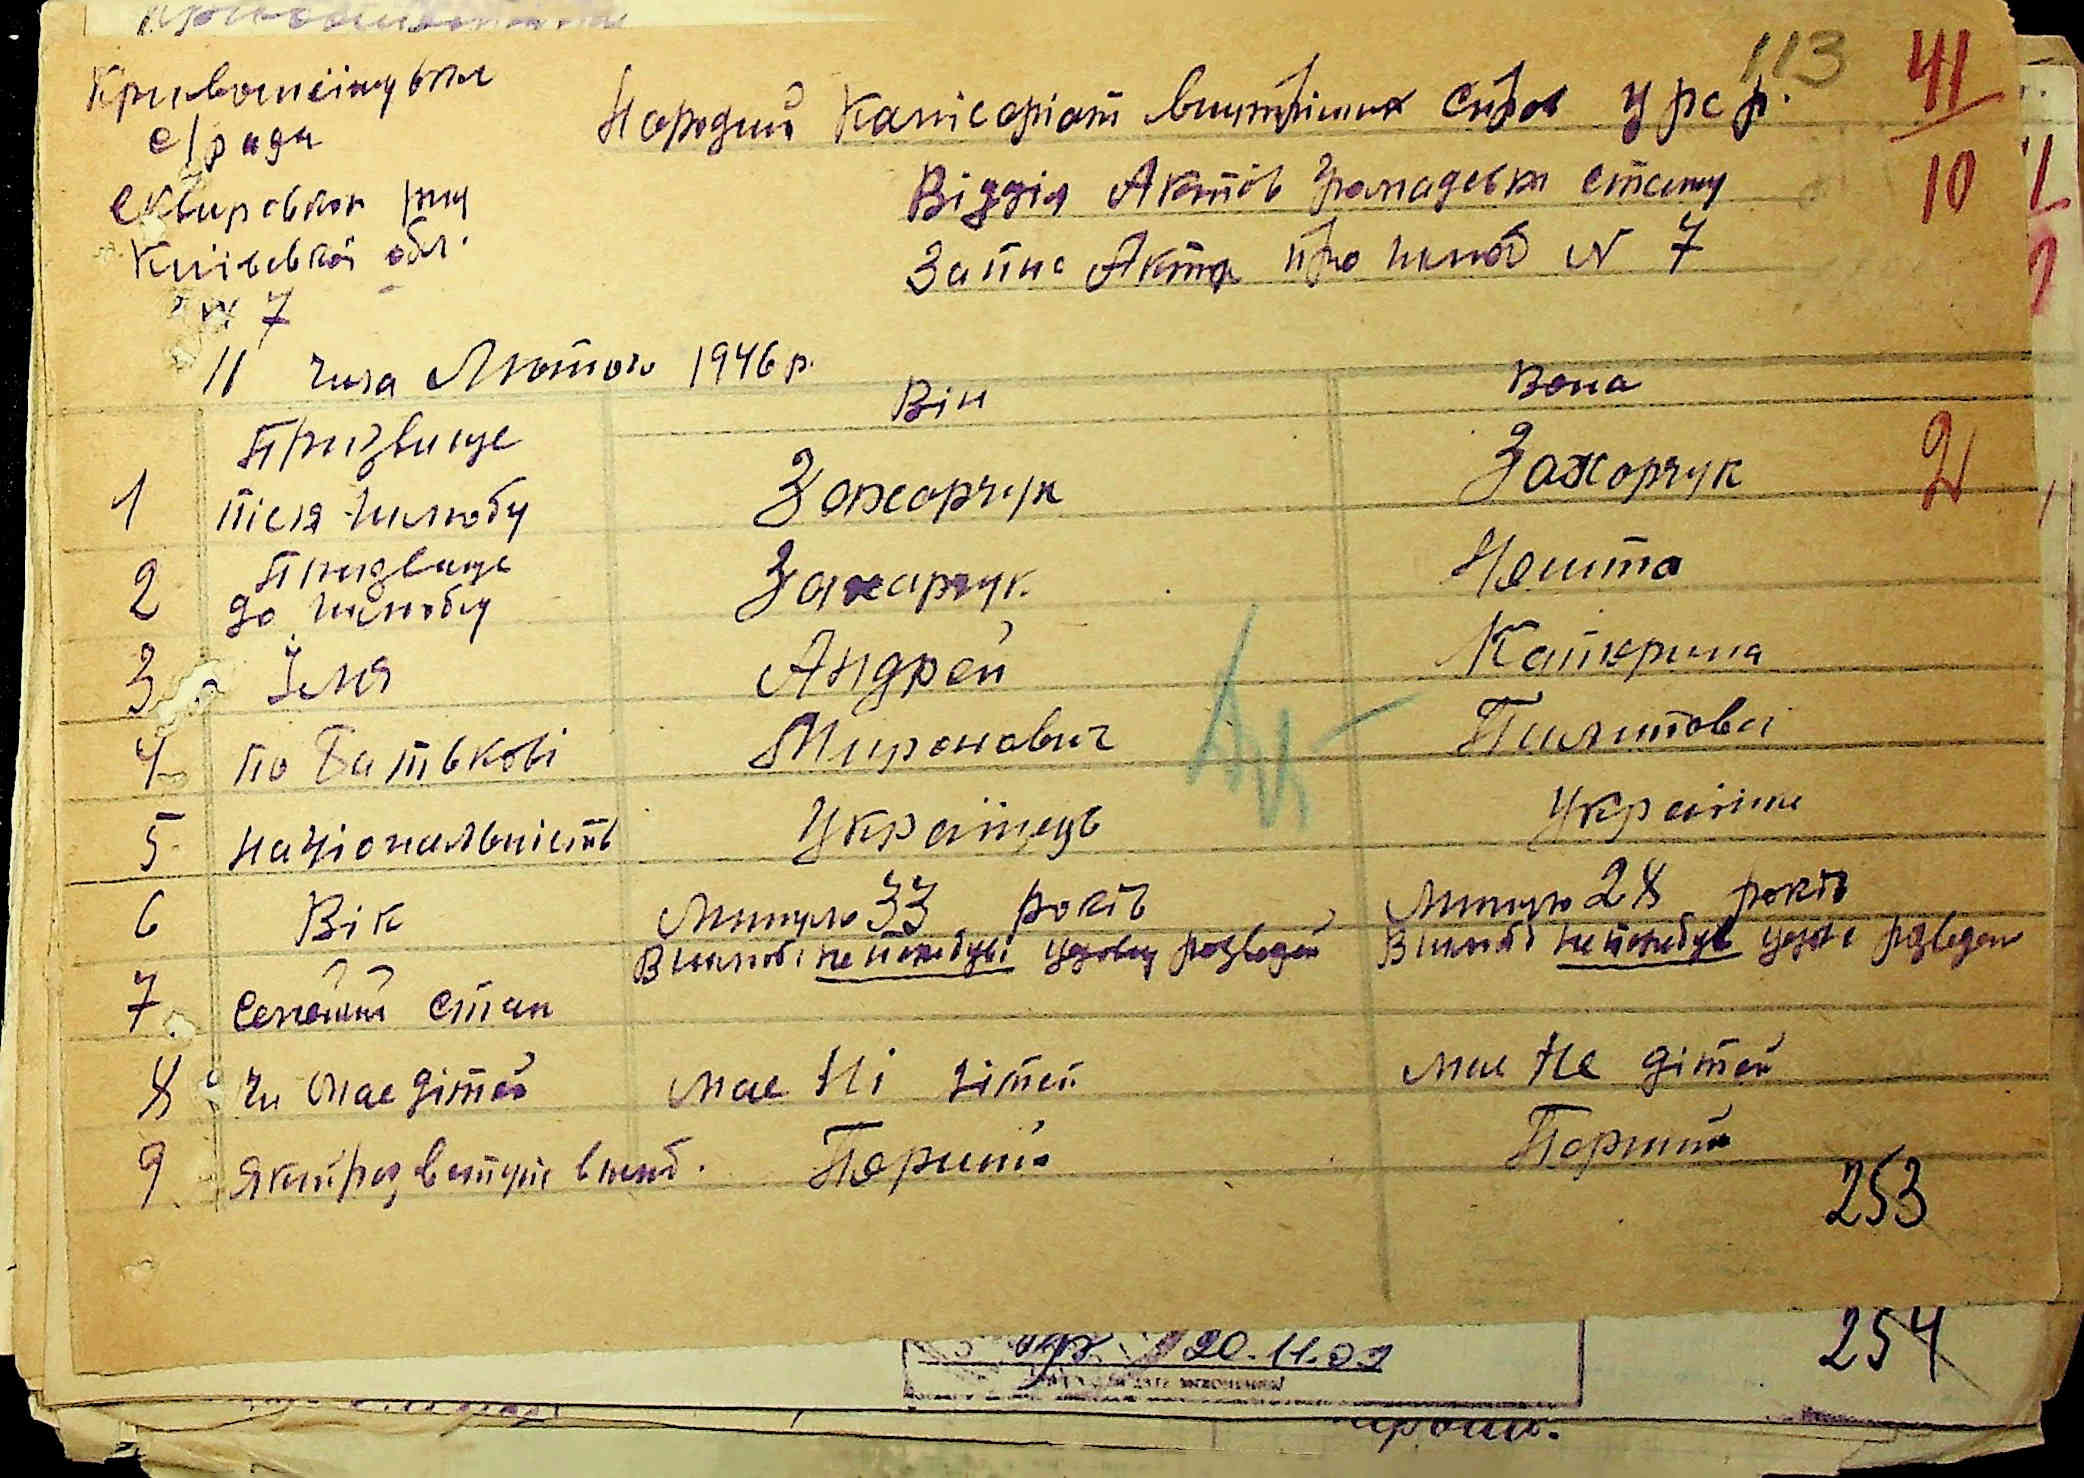 113
41
10
Кривошиїнська
с/рада
Сквирської р-ну
Київської обл.
N 7
Народний Комісаріат внутрішних справ УРСР.
Відділ Актів Громадськ стану
Запис Акта про шлюб N 7
11 числа Лютого 1946 р.
Він Вона
1 Призвище після шлюбу Захарчук Захарчук
2 Призвище до шлюбу Захарчук
3 Імя Андрей Катерина
4 по Батькові Миронович
5 Національність Українець Українка
6 Вік Минуло 33 років Минуло 28 років
7 Сімейний стан В шлюбі не перебував удовец розведен В шлюбі не перебув удова розведен
8 Чи має дітей має Ні дітей має Не дітей
9 Який раз вступає в шлюб. Перший Перший
253
254
20.11.02